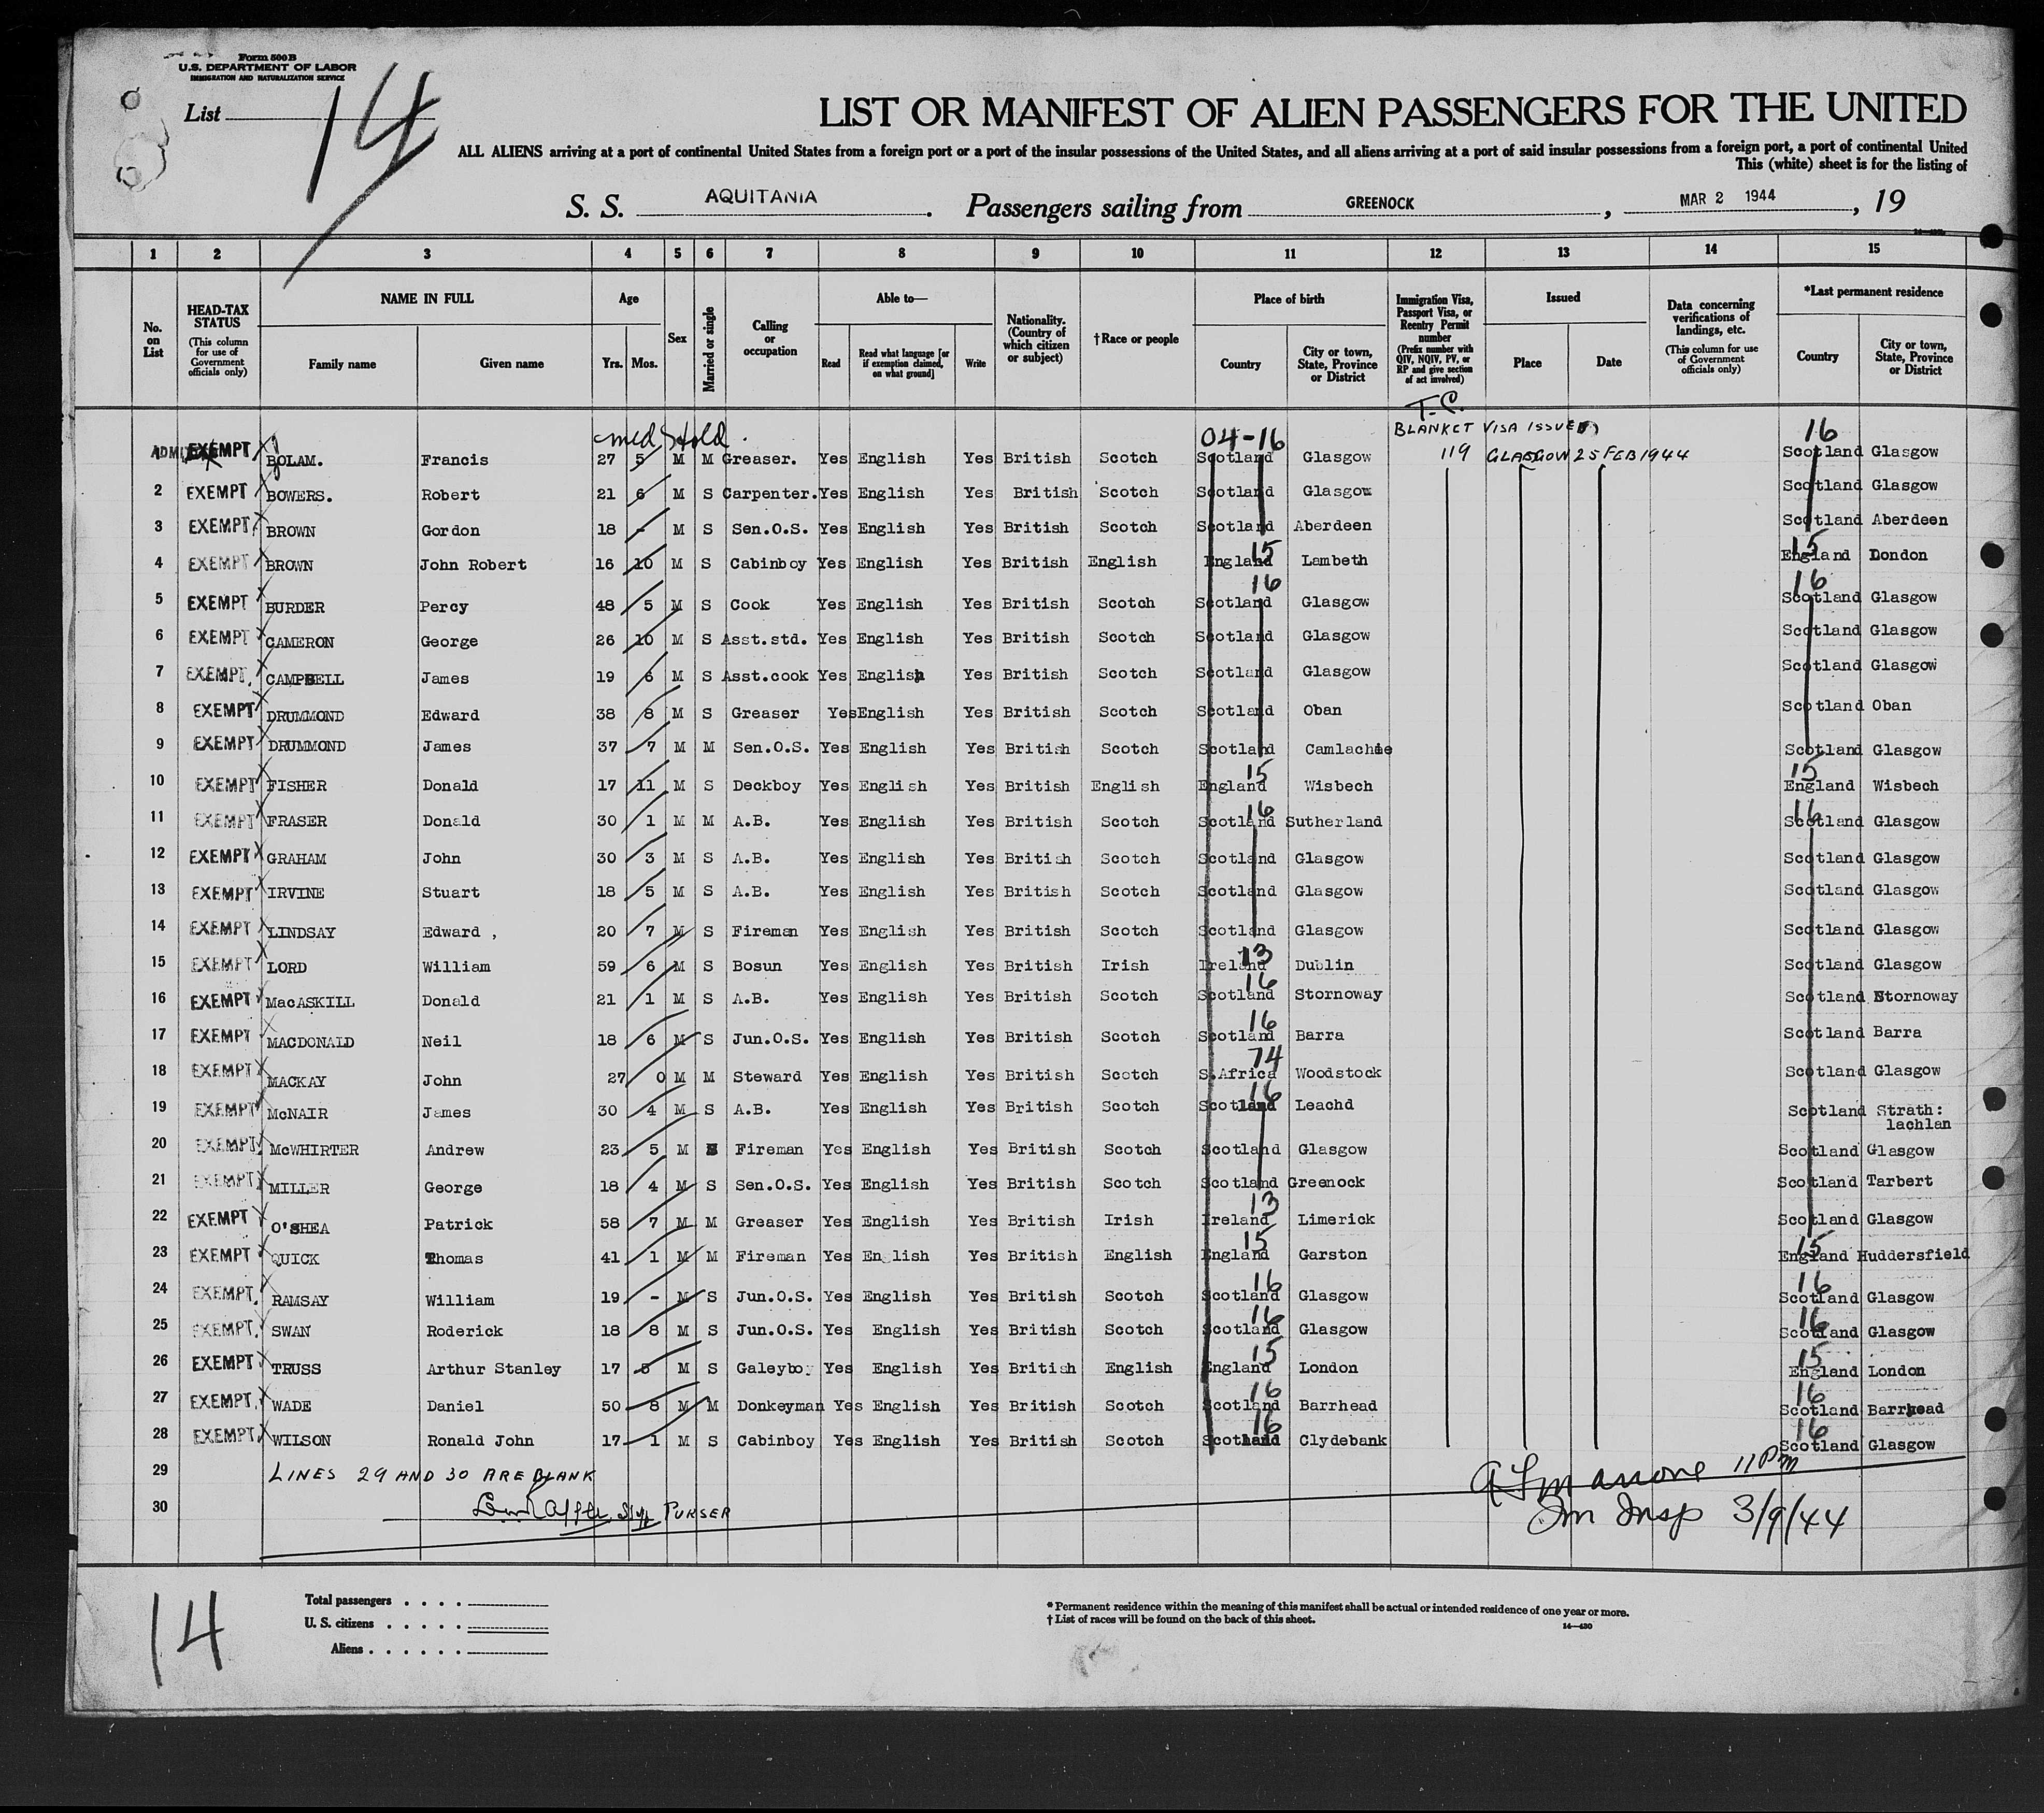 Form 500B
U.S. DEPARTMENT OF LABOR
IMMIGRATION AND NATURALIZATION SERVICE
List 14
LIST OR MANIFEST OF ALIEN PASSENGERS FOR THE UNITED
ALL ALIENS arriving at a port of continental United States from a foreign port or a port of the insular possessions of the United States, and all aliens arriving at a port of said insular possessions from a foreign port, a port of continental United
This (white) sheet is for the listing of
S. S. AQUITANIA. Passengers sailing from GREENOCK, MAR 2 1944, 19
1 2 3 4 5 6 7 8 9 10 11 12 13 14 15
No. on List
HEAD-TAX STATUS (This column for use of Government officials only)
NAME IN FULL
Family name Given name
Age
Yrs. Mos.
Sex
Married or single
Calling or occupation
Able to—
Read Read what language [or if exemption claimed, on what ground] Write
Nationality. (Country of which citizen or subject)
†Race or people
Place of birth
Country City or town, State, Province or District
Immigration Visa, Passport Visa, or Reentry Permit number (Prefix number with QIV, NQIV, PV, or RP and give section of act involved)
Issued
Place Date
Data concerning verifications of landings, etc. (This column for use of Government officials only)
*Last permanent residence
Country City or town, State, Province or District
T.C.
med Hold. 04-16 BLANKET VISA ISSUED 16
1 EXEMPT BOLAM. Francis 27 5 M M Greaser. Yes English Yes British Scotch Scotland Glasgow 119 GLASGOW 25 FEB 1944 Scotland Glasgow
2 EXEMPT BOWERS. Robert 21 6 M S Carpenter. Yes English Yes British Scotch Scotland Glasgow Scotland Glasgow
3 EXEMPT BROWN Gordon 18 - M S Sen.O.S. Yes English Yes British Scotch Scotland Aberdeen Scotland Aberdeen
4 EXEMPT BROWN John Robert 16 10 M S Cabinboy Yes English Yes British English England 15 Lambeth England 15 London
5 EXEMPT BURDER Percy 48 5 M S Cook Yes English Yes British Scotch Scotland 16 Glasgow Scotland 16 Glasgow
6 EXEMPT CAMERON George 26 10 M S Asst.std. Yes English Yes British Scotch Scotland Glasgow Scotland Glasgow
7 EXEMPT CAMPBELL James 19 6 M S Asst.cook Yes English Yes British Scotch Scotland Glasgow Scotland Glasgow
8 EXEMPT DRUMMOND Edward 38 8 M S Greaser Yes English Yes British Scotch Scotland Oban Scotland Oban
9 EXEMPT DRUMMOND James 37 7 M M Sen.O.S. Yes English Yes British Scotch Scotland Camlachie Scotland Glasgow
10 EXEMPT FISHER Donald 17 11 M S Deckboy Yes English Yes British English England 15 Wisbech England 15 Wisbech
11 EXEMPT FRASER Donald 30 1 M M A.B. Yes English Yes British Scotch Scotland 16 Sutherland Scotland 16 Glasgow
12 EXEMPT GRAHAM John 30 3 M S A.B. Yes English Yes British Scotch Scotland Glasgow Scotland Glasgow
13 EXEMPT IRVINE Stuart 18 5 M S A.B. Yes English Yes British Scotch Scotland Glasgow Scotland Glasgow
14 EXEMPT LINDSAY Edward , 20 7 M S Fireman Yes English Yes British Scotch Scotland Glasgow Scotland Glasgow
15 EXEMPT LORD William 59 6 M S Bosun Yes English Yes British Irish Ireland 13 Dublin Scotland Glasgow
16 EXEMPT MacASKILL Donald 21 1 M S A.B. Yes English Yes British Scotch Scotland 16 Stornoway Scotland Stornoway
17 EXEMPT MACDONALD Neil 18 6 M S Jun.O.S. Yes English Yes British Scotch Scotland 16 Barra Scotland Barra
18 EXEMPT MACKAY John 27 0 M M Steward Yes English Yes British Scotch S.Africa 74 Woodstock Scotland Glasgow
19 EXEMPT McNAIR James 30 4 M S A.B. Yes English Yes British Scotch Scotland 16 Leachd Scotland Strath: lachlan
20 EXEMPT McWHIRTER Andrew 23 5 M S Fireman Yes English Yes British Scotch Scotland Glasgow Scotland Glasgow
21 EXEMPT MILLER George 18 4 M S Sen.O.S. Yes English Yes British Scotch Scotland Greenock Scotland Tarbert
22 EXEMPT O'SHEA Patrick 58 7 M M Greaser Yes English Yes British Irish Ireland 13 Limerick Scotland Glasgow
23 EXEMPT QUICK Thomas 41 1 M M Fireman Yes English Yes British English England 15 Garston England 15 Huddersfield
24 EXEMPT RAMSAY William 19 - M S Jun.O.S. Yes English Yes British Scotch Scotland 16 Glasgow Scotland 16 Glasgow
25 EXEMPT SWAN Roderick 18 8 M S Jun.O.S. Yes English Yes British Scotch Scotland 16 Glasgow Scotland 16 Glasgow
26 EXEMPT TRUSS Arthur Stanley 17 5 M S Galeyboy Yes English Yes British English England 15 London England 15 London
27 EXEMPT WADE Daniel 50 8 M M Donkeyman Yes English Yes British Scotch Scotland 16 Barrhead Scotland 16 Barrhead
28 EXEMPT WILSON Ronald John 17 1 M S Cabinboy Yes English Yes British Scotch Scotland 16 Clydebank Scotland 16 Glasgow
29 LINES 29 AND 30 ARE BLANK 11 Pm
30 PURSER Im Insp 3/9/44
14
Total passengers
U. S. citizens
Aliens
* Permanent residence within the meaning of this manifest shall be actual or intended residence of one year or more.
† List of races will be found on the back of this sheet.
14—430